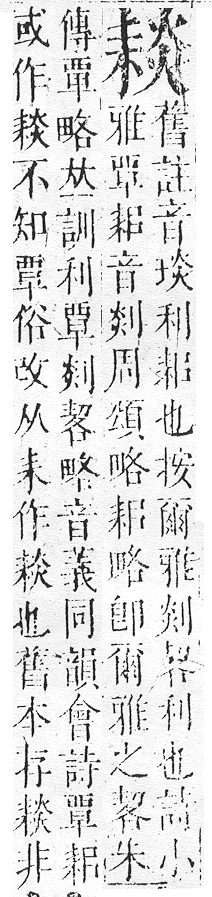 䎦
舊註音琰利耜也按爾雅剡䂮利也詩小
雅覃耜音剡周頌略耜略卽爾雅之䂮朱
傳覃略𠀤訓利覃剡䂮略音義同韻會詩覃耜
或作䎦不知覃俗改从耒作䎦也舊本存䎦非